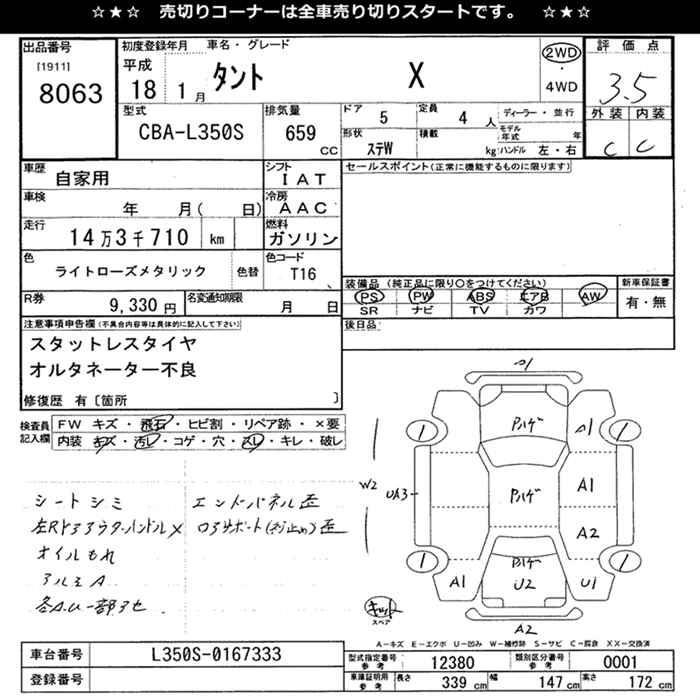 ☆★☆ 売切りコーナーは全車売り切りスタートです。 ☆★☆
出品番号
[1911]
8063
初度登録年月 車名・グレード
平成
18 1月 タント X
2WD
・
4WD
評価点
3.5
外装 内装
C C
型式
CBA-L350S
排気量
659 cc
ドア 5
定員 4 人
ディーラー・並行
形状 ステW
積載 kg
モデル年式 年
ハンドル 左・右
車歴
自家用
シフト
IAT
セールスポイント(正常に機能するものに限ります)
車検
年 月( 日)
冷房
AAC
走行
14万3千710 km
燃料
ガソリン
色
ライトローズメタリック
色替
色コード
T16
装備品 (純正品に限り○をつけてください)
PS PW ABS エアB AW
SR ナビ TV カワ
新車保証書
有・無
R券
9,330 円
名変通知期限
月 日
後日品
注意事項申告欄(不具合内容等は具体的に記入して下さい)
スタットレスタイヤ
オルタネーター不良
修復歴 有〔箇所 〕
検査員記入欄
FW キズ・飛石・ヒビ割・リペア跡・×要
内装 キズ・汚レ・コゲ・穴・スレ・キレ・破レ
シートシミ
オイルもれ
アルミA
エンドパネル歪
W2
UA3
A1
Pハゲ
A1
Pハゲ
A1
A2
Pハゲ
U2
A1
U1
A2
スペア
A-キズ E-エクボ U-凹み W-補修跡 S-サビ C-腐食 XX-交換済
車台番号
L350S-0167333
登録番号
型式指定番号
参考
12380
類別区分番号
参考
0001
車庫証明用
参考
長さ 339 cm
幅 147 cm
高さ 172 cm